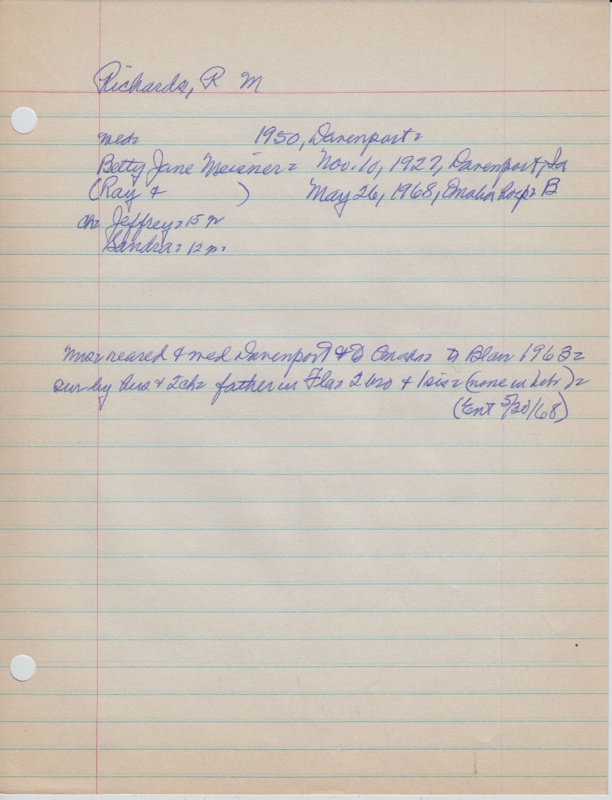 Richards, R M
med= 1950, Davenport=
Betty Jane Meisner= Nov. 10, 1927, Davenport, Ia
(Ray & ) May 26, 1968, Omaha hosp= B
ch= Jeffrey= 15 yr
Sandra= 12 yr
Mrs= reared & med Davenport & to Omaha= to Blair 1963=
sur by hus & 2ch= father in Fla= 2 bro & 1 sis= (none in Nebr)=
(Ent 5/28/68)